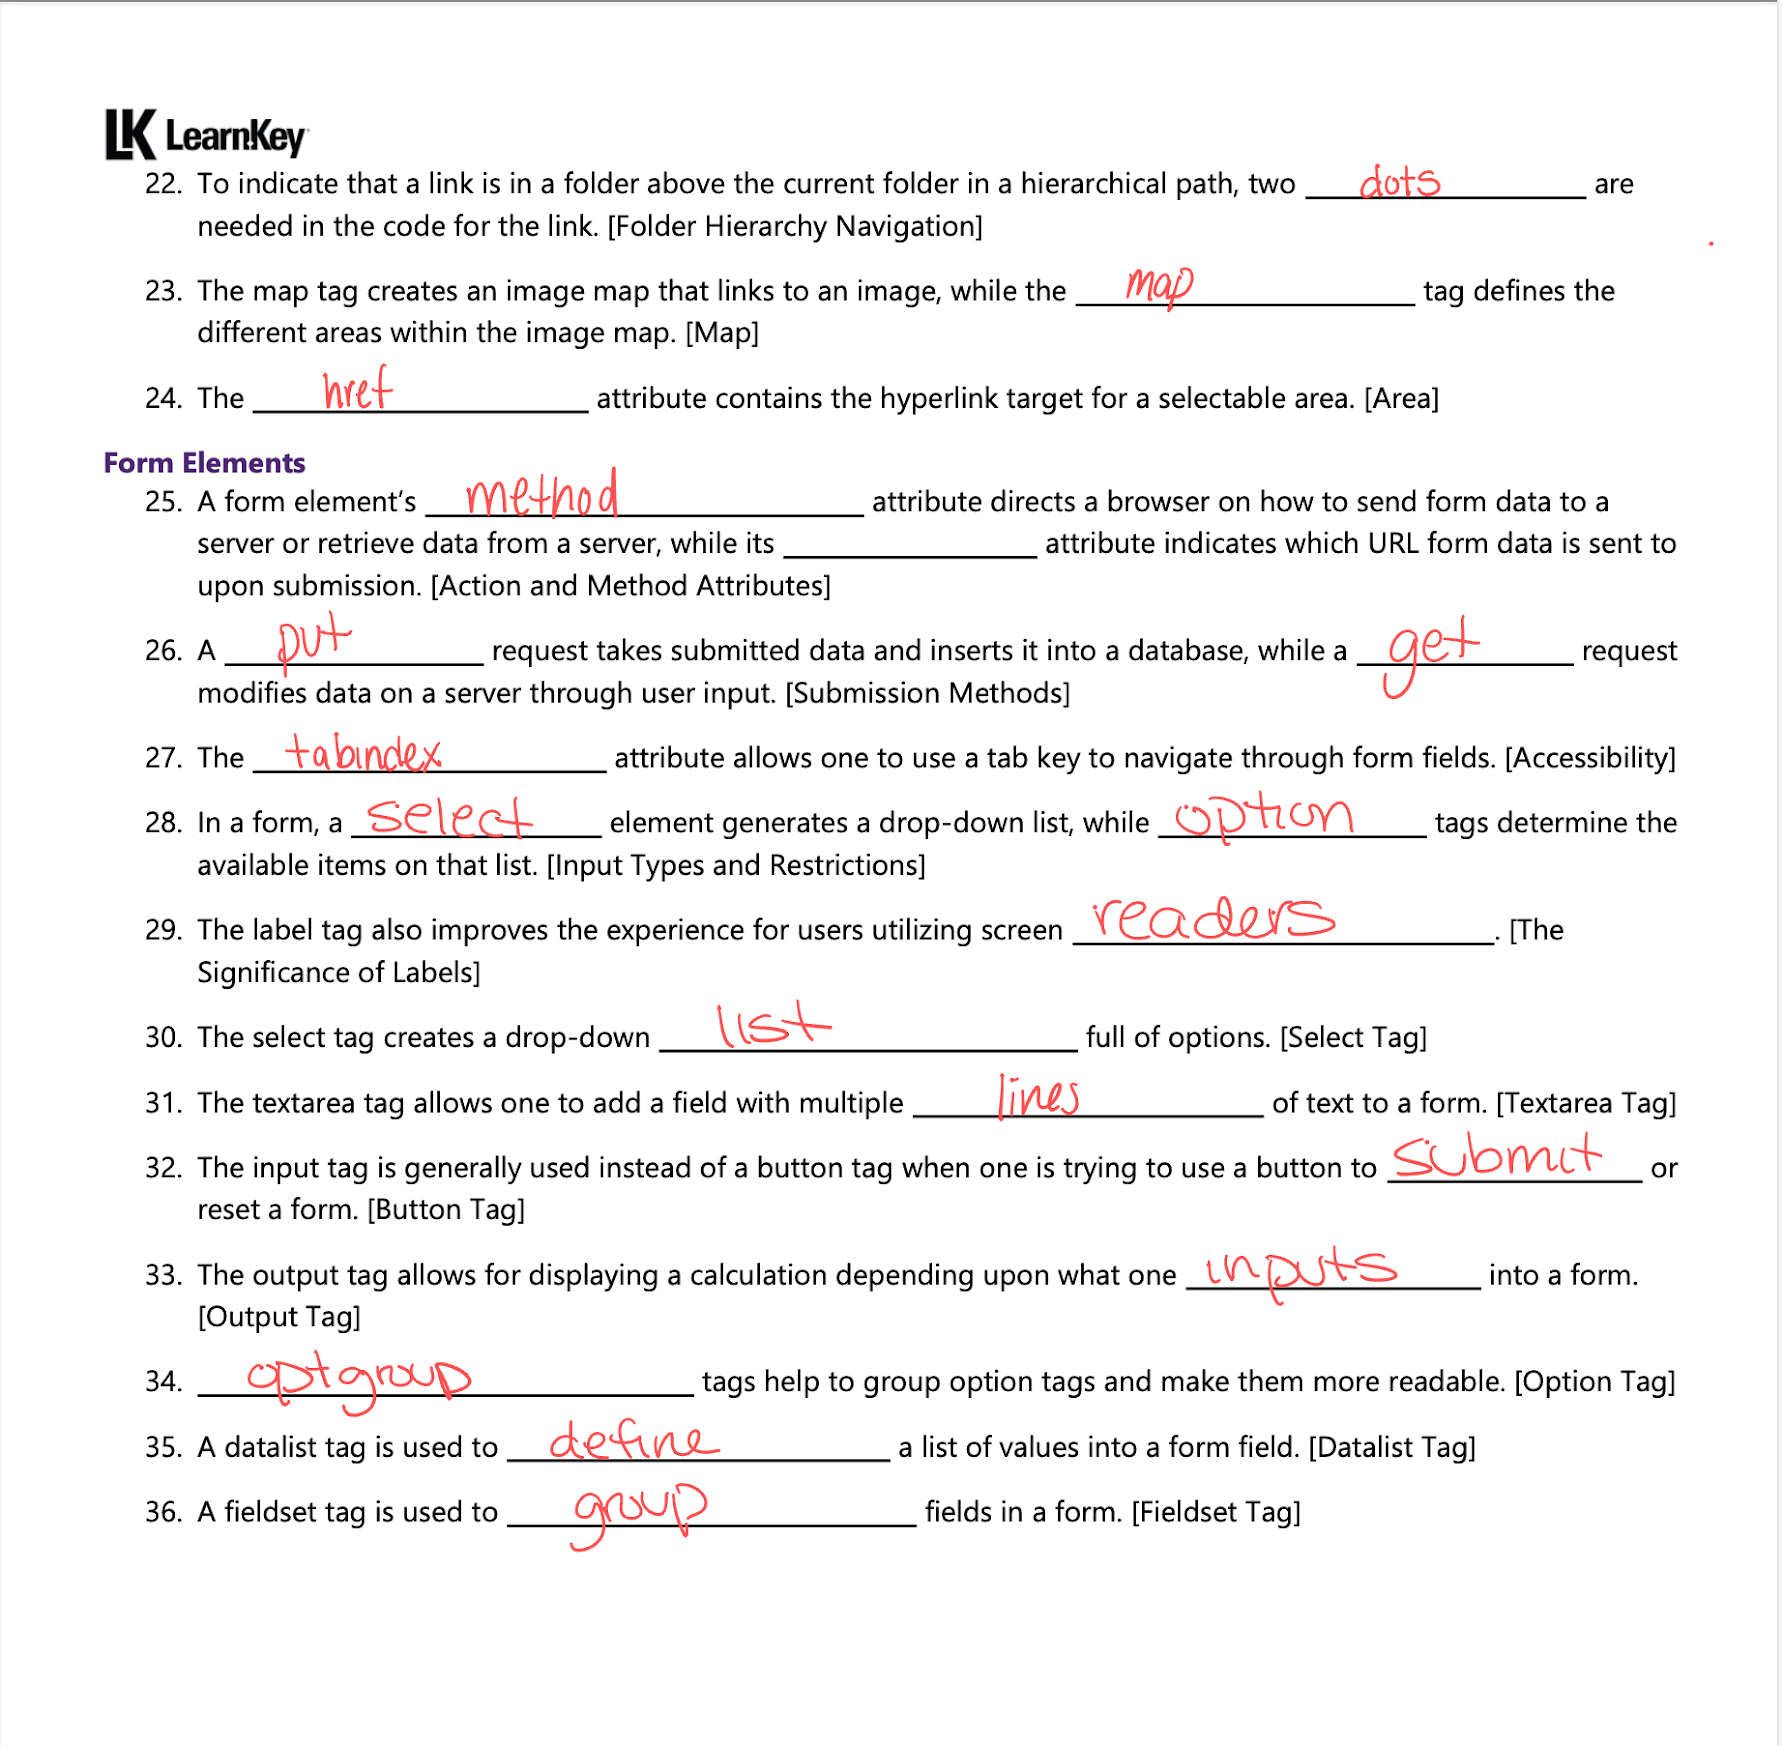 LK LearnKey
22. To indicate that a link is in a folder above the current folder in a hierarchical path, two dots are
needed in the code for the link. [Folder Hierarchy Navigation]
23. The map tag creates an image map that links to an image, while the map tag defines the
different areas within the image map. [Map]
24. The href attribute contains the hyperlink target for a selectable area. [Area]
Form Elements
25. A form element's method attribute directs a browser on how to send form data to a
server or retrieve data from a server, while its ________ attribute indicates which URL form data is sent to
upon submission. [Action and Method Attributes]
26. A put request takes submitted data and inserts it into a database, while a get request
modifies data on a server through user input. [Submission Methods]
27. The tabindex attribute allows one to use a tab key to navigate through form fields. [Accessibility]
28. In a form, a select element generates a drop-down list, while option tags determine the
available items on that list. [Input Types and Restrictions]
29. The label tag also improves the experience for users utilizing screen readers. [The
Significance of Labels]
30. The select tag creates a drop-down list full of options. [Select Tag]
31. The textarea tag allows one to add a field with multiple lines of text to a form. [Textarea Tag]
32. The input tag is generally used instead of a button tag when one is trying to use a button to submit or
reset a form. [Button Tag]
33. The output tag allows for displaying a calculation depending upon what one inputs into a form.
[Output Tag]
34. optgroup tags help to group option tags and make them more readable. [Option Tag]
35. A datalist tag is used to define a list of values into a form field. [Datalist Tag]
36. A fieldset tag is used to group fields in a form. [Fieldset Tag]